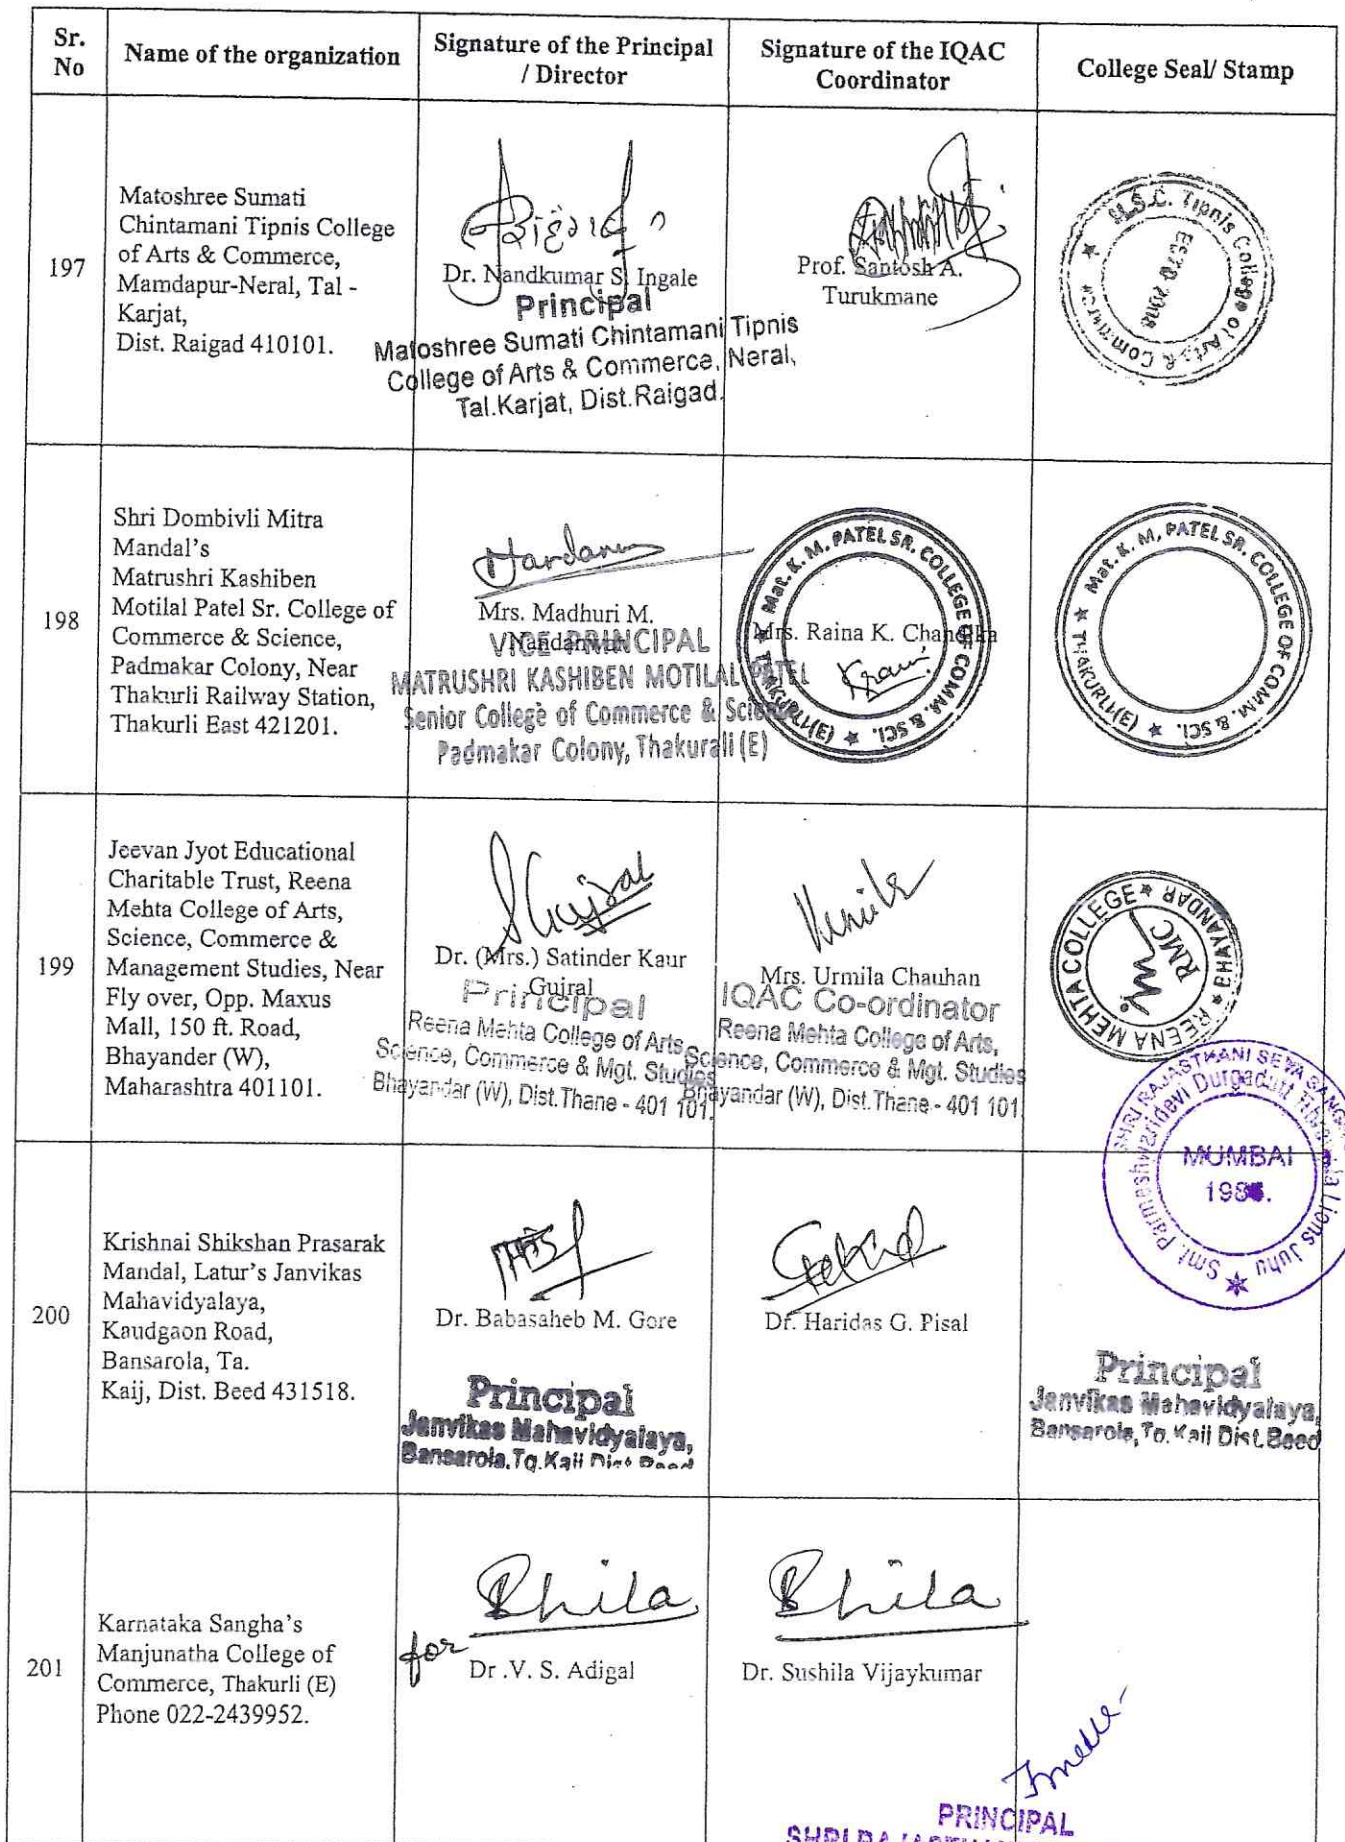 Sr.
No
Name of the organization
Signature of the Principal
/ Director
Signature of the IQAC
Coordinator
College Seal/ Stamp
197
Matoshree Sumati
Chintamani Tipnis College
of Arts & Commerce,
Mamdapur-Neral, Tal -
Karjat,
Dist. Raigad 410101.
Dr. Nandkumar S. Ingale
Principal
Matoshree Sumati Chintamani Tipnis
College of Arts & Commerce, Neral,
Tal.Karjat, Dist.Raigad.
Prof. Santosh A.
Turukmane
M.S.C. Tipnis College of Arts & Commerce
ESTD 2008
198
Shri Dombivli Mitra
Mandal's
Matrushri Kashiben
Motilal Patel Sr. College of
Commerce & Science,
Padmakar Colony, Near
Thakurli Railway Station,
Thakurli East 421201.
Mrs. Madhuri M.
VICE PRINCIPAL
MATRUSHRI KASHIBEN MOTILAL PATEL
Senior College of Commerce & Science
Padmakar Colony, Thakurali (E)
Mat. K. M. PATEL SR. COLLEGE OF COMM. & SCI. ★ THAKURLI(E) ★
Mrs. Raina K. Chandika
Mat. K. M. PATEL SR. COLLEGE OF COMM. & SCI. ★ THAKURLI(E) ★
199
Jeevan Jyot Educational
Charitable Trust, Reena
Mehta College of Arts,
Science, Commerce &
Management Studies, Near
Fly over, Opp. Maxus
Mall, 150 ft. Road,
Bhayander (W),
Maharashtra 401101.
Dr. (Mrs.) Satinder Kaur
Gujral
Principal
Reena Mehta College of Arts,
Science, Commerce & Mgt. Studies
Bhayandar (W), Dist.Thane - 401 101.
Mrs. Urmila Chauhan
IQAC Co-ordinator
Reena Mehta College of Arts,
Science, Commerce & Mgt. Studies
Bhayandar (W), Dist.Thane - 401 101
REENA MEHTA COLLEGE ★ BHAYANDAR ★
RMC
SHRI RAJASTHANI SEWA SANGH
Smt. Parmeshwaridevi Durgadutt Tibrewala Lions Juhu
MUMBAI
200
Krishnai Shikshan Prasarak
Mandal, Latur's Janvikas
Mahavidyalaya,
Kaudgaon Road,
Bansarola, Ta.
Kaij, Dist. Beed 431518.
Dr. Babasaheb M. Gore
Principal
Janvikas Mahavidyalaya,
Bansarola, Tq. Kaij Dist Beed
Dr. Haridas G. Pisal
Principal
Janvikas Mahavidyalaya,
Bansarola, Tq. Kaij Dist. Beed
201
Karnataka Sangha's
Manjunatha College of
Commerce, Thakurli (E)
Phone 022-2439952.
for
Dr .V. S. Adigal
Dr. Sushila Vijaykumar
PRINCIPAL